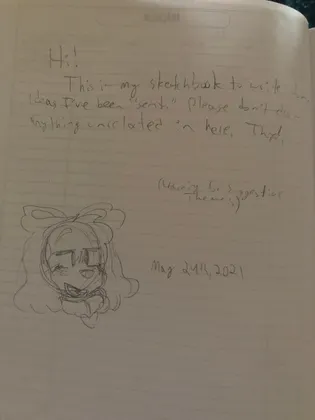 Hi!
This is my sketchbook to write down
ideas I've been "sent." Please don't draw
anything unrelated in here. Thx!
May 24th, 2021